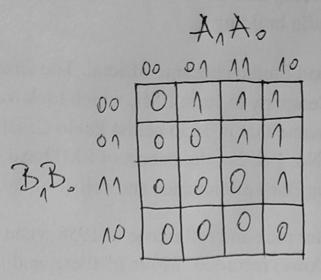 A₁A₀
00 01 11 10
00 0 1 1 1
01 0 0 1 1
B₁B₀ 11 0 0 0 1
10 0 0 0 0